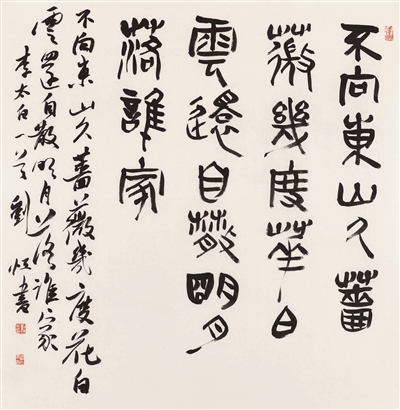 不向東山久薔
薇幾度華白
雲還自散明月
落誰家
不向東山久薔薇幾度花白
雲還自散明月落誰家
李太白一首 劉恒書